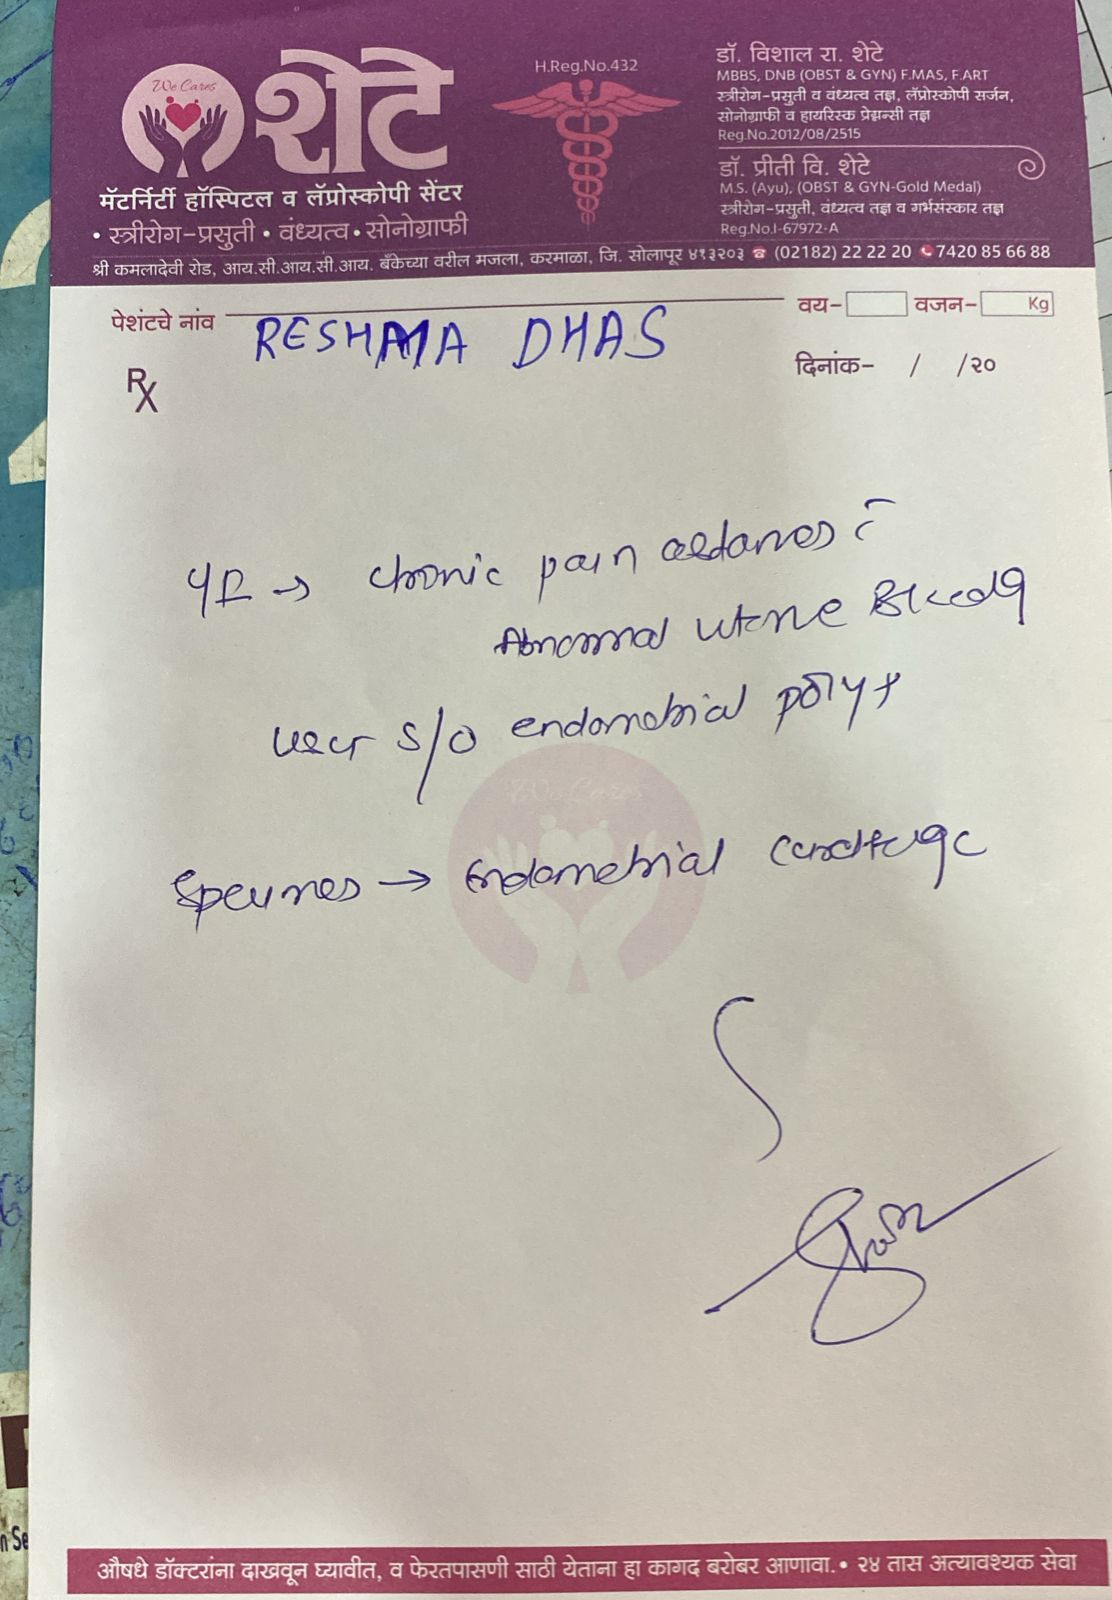 We Cares
शेटे
मॅटर्निटी हॉस्पिटल व लॅप्रोस्कोपी सेंटर
• स्त्रीरोग-प्रसुती • वंध्यत्व • सोनोग्राफी
H.Reg.No.432
डॉ. विशाल रा. शेटे
MBBS, DNB (OBST & GYN) F.MAS, F.ART
स्त्रीरोग-प्रसुती व वंध्यत्व तज्ञ, लॅप्रोस्कोपी सर्जन,
सोनोग्राफी व हायरिस्क प्रेग्नन्सी तज्ञ
Reg.No.2012/08/2515
डॉ. प्रीती वि. शेटे
M.S. (Ayu), (OBST & GYN-Gold Medal)
स्त्रीरोग-प्रसुती, वंध्यत्व तज्ञ व गर्भसंस्कार तज्ञ
Reg.No.I-67972-A
श्री कमलादेवी रोड, आय.सी.आय.सी.आय. बँकेच्या वरील मजला, करमाळा, जि. सोलापूर ४१३२०३ ☎ (02182) 22 22 20 7420 85 66 88
पेशंटचे नांव RESHMA DHAS वय- वजन- Kg
Rx दिनांक- / /२०
chronic pain
Abnormal uterine Bleeding
s/o endometrial polyp
We Cares
→ Endometrial
औषधे डॉक्टरांना दाखवून घ्यावीत, व फेरतपासणी साठी येताना हा कागद बरोबर आणावा. • २४ तास अत्यावश्यक सेवा